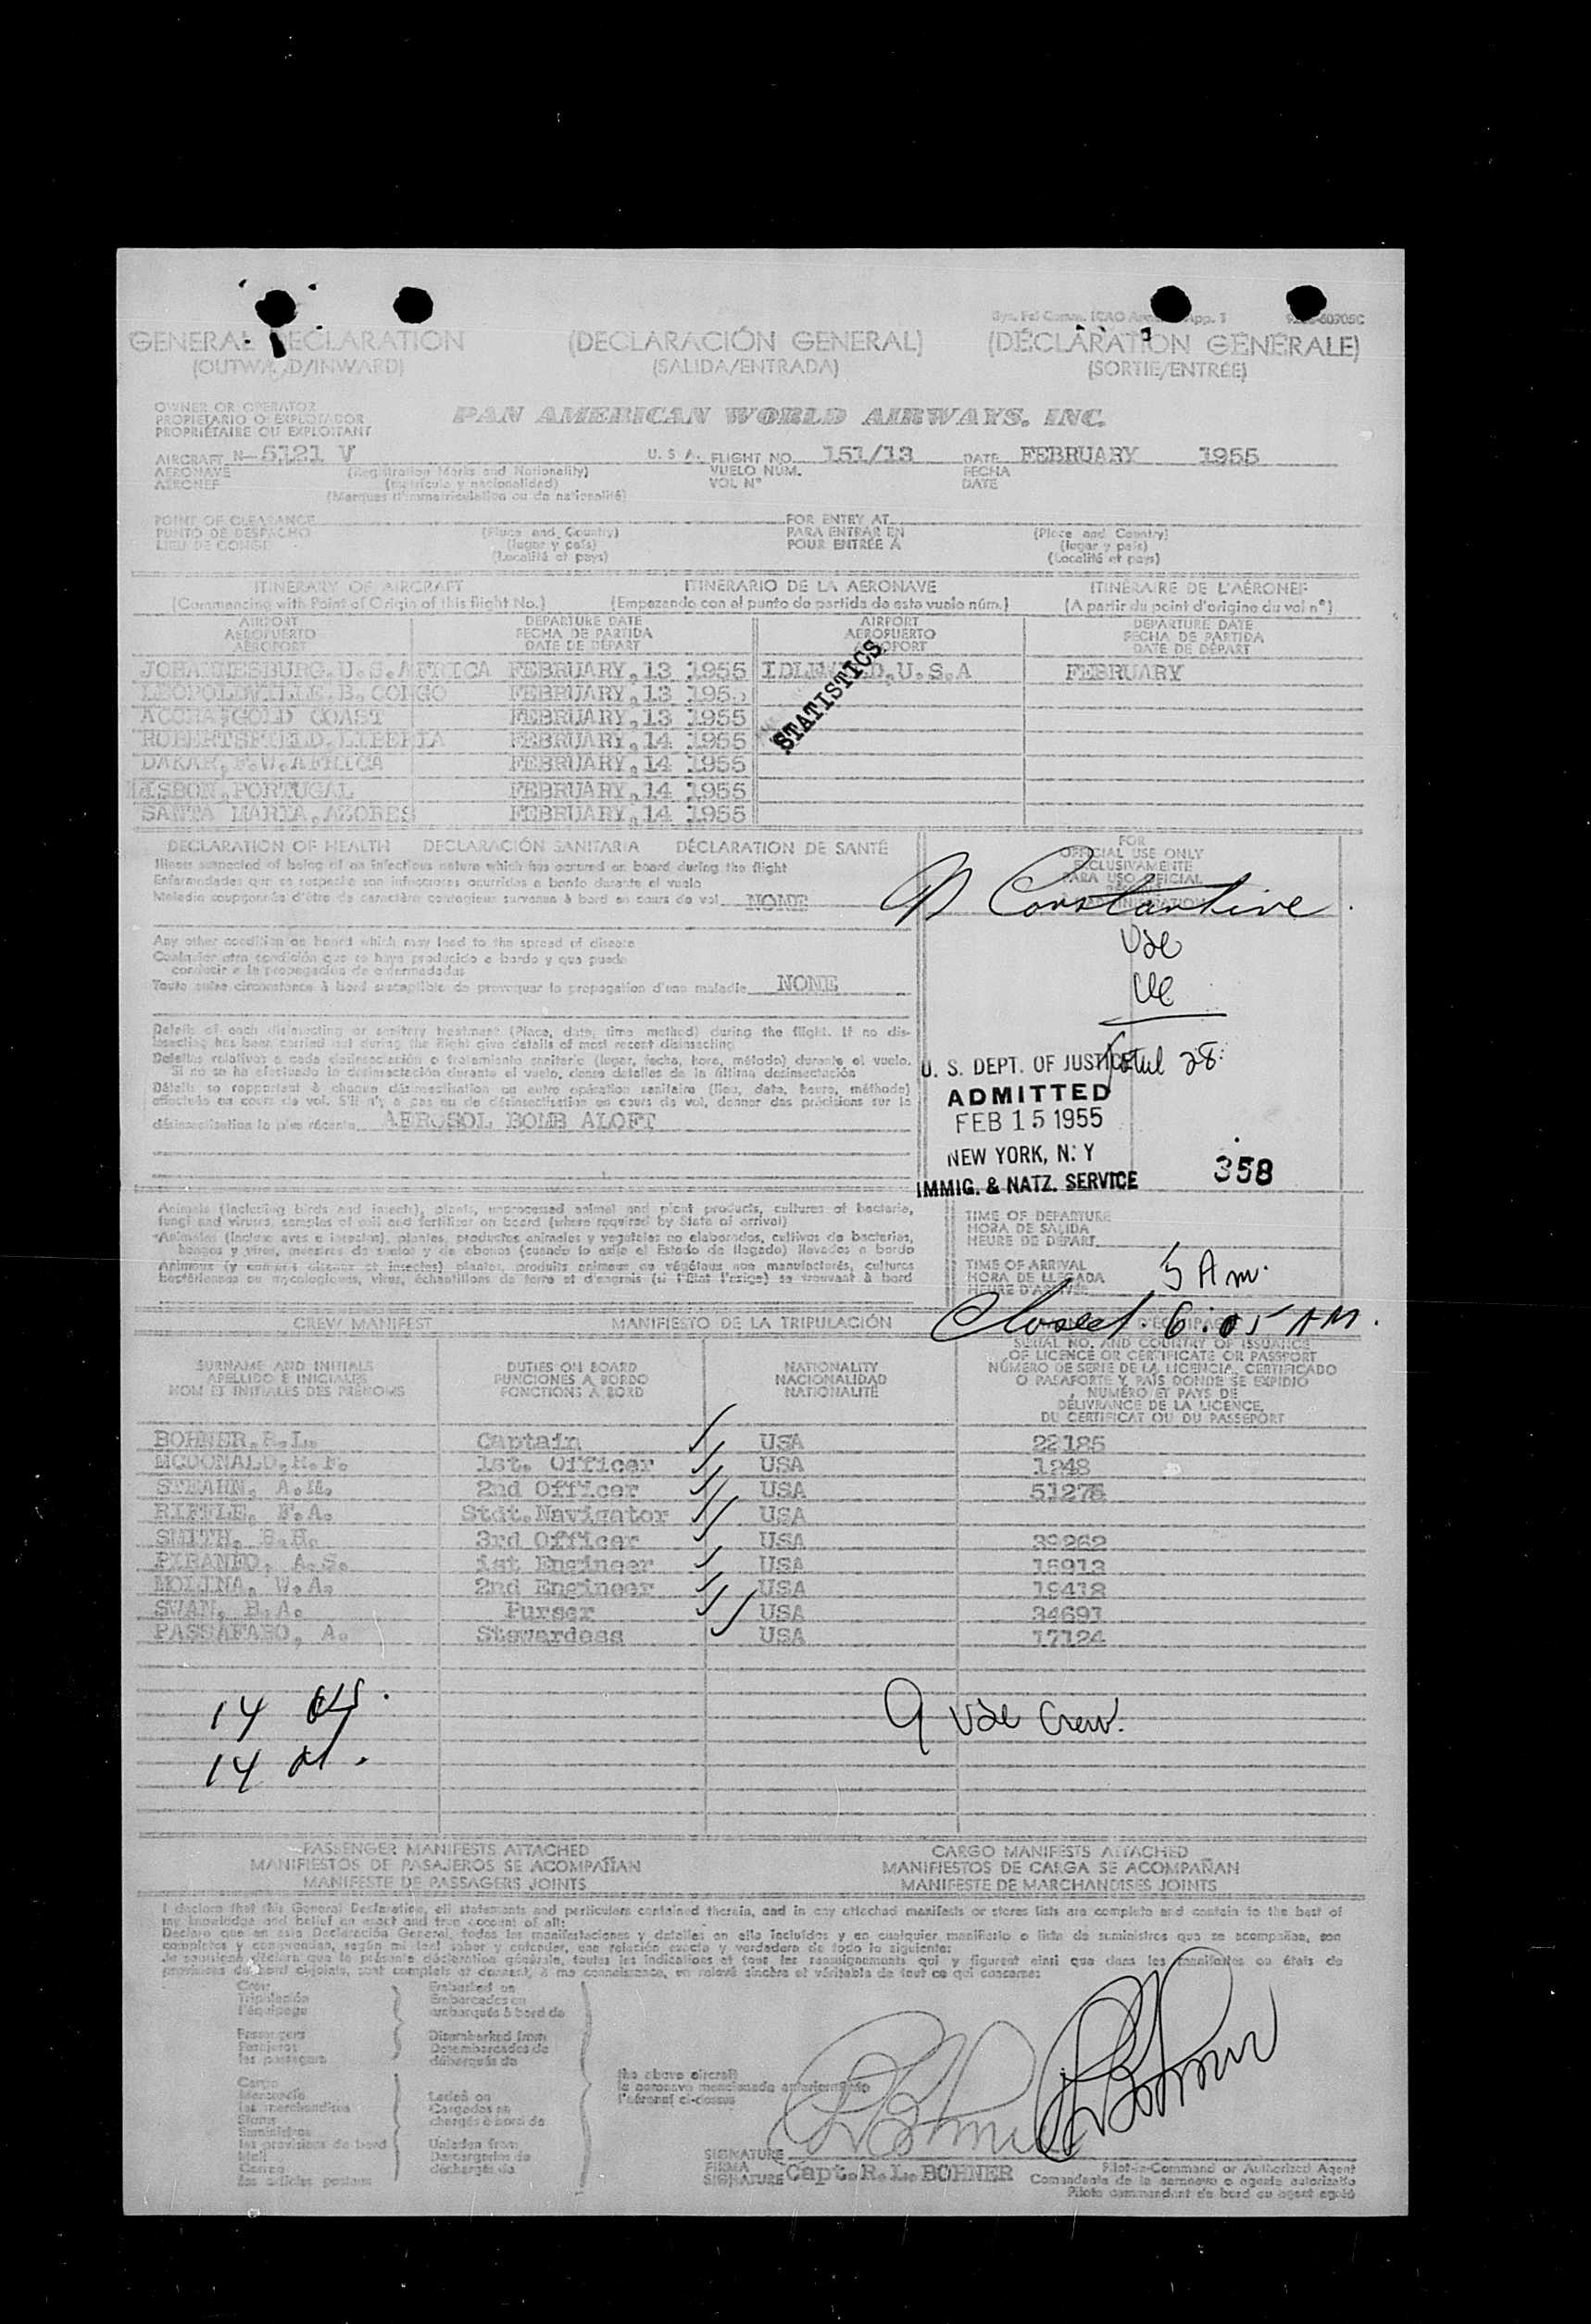 App. 1
GENERAL DECLARATION (DECLARACIÓN GENERAL) (DÉCLARATION GÉNÉRALE)
(OUTWARD/INWARD) (SALIDA/ENTRADA) (SORTIE/ENTRÉE)
OWNER OR OPERATOR
PROPIETARIO O EXPLOTADOR
PROPRIÉTAIRE OU EXPLOITANT
PAN AMERICAN WORLD AIRWAYS, INC.
AIRCRAFT N-5121 V U. S. A. FLIGHT NO. 151/13 DATE FEBRUARY 1955
AERONAVE (Registration Marks and Nationality) VUELO NÚM. FECHA
AÉRONEF (matrícula y nacionalidad) VOL Nº DATE
(Marques d'immatriculation ou de nationalité)
POINT OF CLEARANCE FOR ENTRY AT
PUNTO DE DESPACHO (Place and Country) PARA ENTRAR EN (Place and Country)
LIEU DE CONGÉ (lugar y país) POUR ENTRÉE À (lugar y país)
(Localité et pays) (Localité et pays)
ITINERARY OF AIRCRAFT ITINERARIO DE LA AERONAVE ITINÉRAIRE DE L'AÉRONEF
(Commencing with Point of Origin of this flight No.) (Empezando con el punto de partida de este vuelo núm.) (A partir du point d'origine du vol nº)
AIRPORT DEPARTURE DATE AIRPORT DEPARTURE DATE
AEROPUERTO FECHA DE PARTIDA AEROPUERTO FECHA DE PARTIDA
AÉROPORT DATE DE DÉPART AÉROPORT DATE DE DÉPART
JOHANNESBURG,U.S.AFRICA FEBRUARY,13 1955 IDLEWILD,U.S.A FEBRUARY
LEOPOLDVILLE.B.CONGO FEBRUARY,13 1955
ACCRA,GOLD COAST FEBRUARY,13 1955
ROBERTSFIELD.LIBERIA FEBRUARY,14 1955
DAKAR,F.W.AFRICA FEBRUARY,14 1955
LISBON,PORTUGAL FEBRUARY,14 1955
SANTA MARIA,AZORES FEBRUARY,14 1955
STATISTICS
DECLARATION OF HEALTH DECLARACIÓN SANITARIA DÉCLARATION DE SANTÉ
Illness suspected of being of an infectious nature which has occured on board during the flight
Enfermedades que se sospeche son infecciosas ocurridas a bordo durante el vuelo
Maladie soupçonnée d'être de caractère contagieux survenue à bord en cours de vol NONE
Any other condition on board which may lead to the spread of disease
Cualquier otra condición que se haya producido a bordo y que pueda
conducir a la propagación de enfermedades
Toute autre circonstance à bord susceptible de provoquer la propagation d'une maladie NONE
Details of each disinsecting or sanitary treatment (Place, date, time method) during the flight. If no dis-
insecting has been carried out during the flight give details of most recent disinsecting
Detalles relativos a cada desinsectación o tratamiento sanitario (lugar, fecha, hora, método) durante el vuelo.
Si no se ha efectuado la desinsectación durante el vuelo, dense detalles de la última desinsectación
Détails se rapportant à chaque désinsectisation ou autre opération sanitaire (lieu, date, heure, méthode)
effectuée en cours de vol. S'il n'y a pas eu de désinsectisation en cours de vol, donner des précisions sur la
désinsectisation la plus récente AEROSOL BOMB ALOFT
FOR
OFFICIAL USE ONLY
EXCLUSIVAMENTE
PARA USO OFICIAL
Constantine
U. S. DEPT. OF JUSTICE
Total 28
ADMITTED
FEB 15 1955
NEW YORK, N. Y
IMMIG. & NATZ. SERVICE
358
Animals (including birds and insects), plants, unprocessed animal and plant products, cultures of bacteria,
fungi and viruses, samples of soil and fertilizer on board (where required by State of arrival)
Animales (incluso aves e insectos), plantas, productos animales y vegetales no elaborados, cultivos de bacterias,
hongos y virus, muestras de suelos y de abonos (cuando lo exija el Estado de llegada) llevados a bordo
Animaux (y compris oiseaux et insectes) plantes, produits animaux ou végétaux non manufacturés, cultures
bactériennes ou mycologiques, virus, échantillons de terre et d'engrais (si l'État l'exige) se trouvant à bord
TIME OF DEPARTURE
HORA DE SALIDA
HEURE DE DÉPART
TIME OF ARRIVAL
HORA DE LLEGADA 5 Am.
HEURE D'ARRIVÉE
Closed 6:05 AM.
CREW MANIFEST MANIFIESTO DE LA TRIPULACIÓN
SURNAME AND INITIALS DUTIES ON BOARD NATIONALITY SERIAL NO. AND COUNTRY OF ISSUANCE
APELLIDO E INICIALES FUNCIONES A BORDO NACIONALIDAD OF LICENCE OR CERTIFICATE OR PASSPORT
NOM ET INITIALES DES PRÉNOMS FONCTIONS À BORD NATIONALITÉ NÚMERO DE SERIE DE LA LICENCIA, CERTIFICADO
O PASAPORTE Y PAÍS DONDE SE EXPIDIÓ
NUMÉRO ET PAYS DE
DÉLIVRANCE DE LA LICENCE,
DU CERTIFICAT OU DU PASSEPORT
BOHNER,R.L. Captain USA 22185
MCDONALD,H.F. 1st. Officer USA 1248
STRAHN, A.M. 2nd Officer USA
RIFFLE, F.A. Stdt.Navigator USA
SMITH, 3rd Officer USA 39262
A.S. 1st Engineer USA 16913
MOLINA, W.A. 2nd Engineer USA 19418
SWAN, B.A. Purser USA 34691
PASSAFARO, A. Stewardess USA 17124
14
14
9 USC Crew.
PASSENGER MANIFESTS ATTACHED CARGO MANIFESTS ATTACHED
MANIFIESTOS DE PASAJEROS SE ACOMPAÑAN MANIFIESTOS DE CARGA SE ACOMPAÑAN
MANIFESTE DE PASSAGERS JOINTS MANIFESTE DE MARCHANDISES JOINTS
I declare that this General Declaration, all statements and particulars contained therein, and in any attached manifests or stores lists are complete and contain to the best of
my knowledge and belief an exact and true account of all:
Declaro que en esta Declaración General, todas las manifestaciones y detalles en ella incluídos y en cualquier manifiesto o lista de suministros que se acompañan, son
completos y comprenden, según mi leal saber y entender, una relación exacta y verdadera de todo lo siguiente:
Je soussigné déclare que la présente déclaration générale, toutes les indications et tous les renseignements qui y figurent ainsi que dans les manifestes ou états de
provisions de bord ci-joints, sont complets et donnent, à ma connaissance, un relevé sincère et véritable de tout ce qui concerne:
Crew Embarked on
Tripulación Embarcados en
l'équipage embarqués à bord de
Passengers Disembarked from
Pasajeros Desembarcados de
les passagers débarqués de
Cargo
Mercancía Laded on
les marchandises Cargados en
Stores chargés à bord de
Suministros
les provisions de bord Unladen from
Mail Descargados de
Correo déchargés de
les articles postaux
the above aircraft
la aeronave mencionada anteriormente
l'aéronef ci-dessus
SIGNATURE
FIRMA
SIGNATURE Capt.R.L.BOHNER
Pilot-in-Command or Authorized Agent
Comandante de la aeronave o agente autorizado
Pilote commandant de bord ou agent agréé